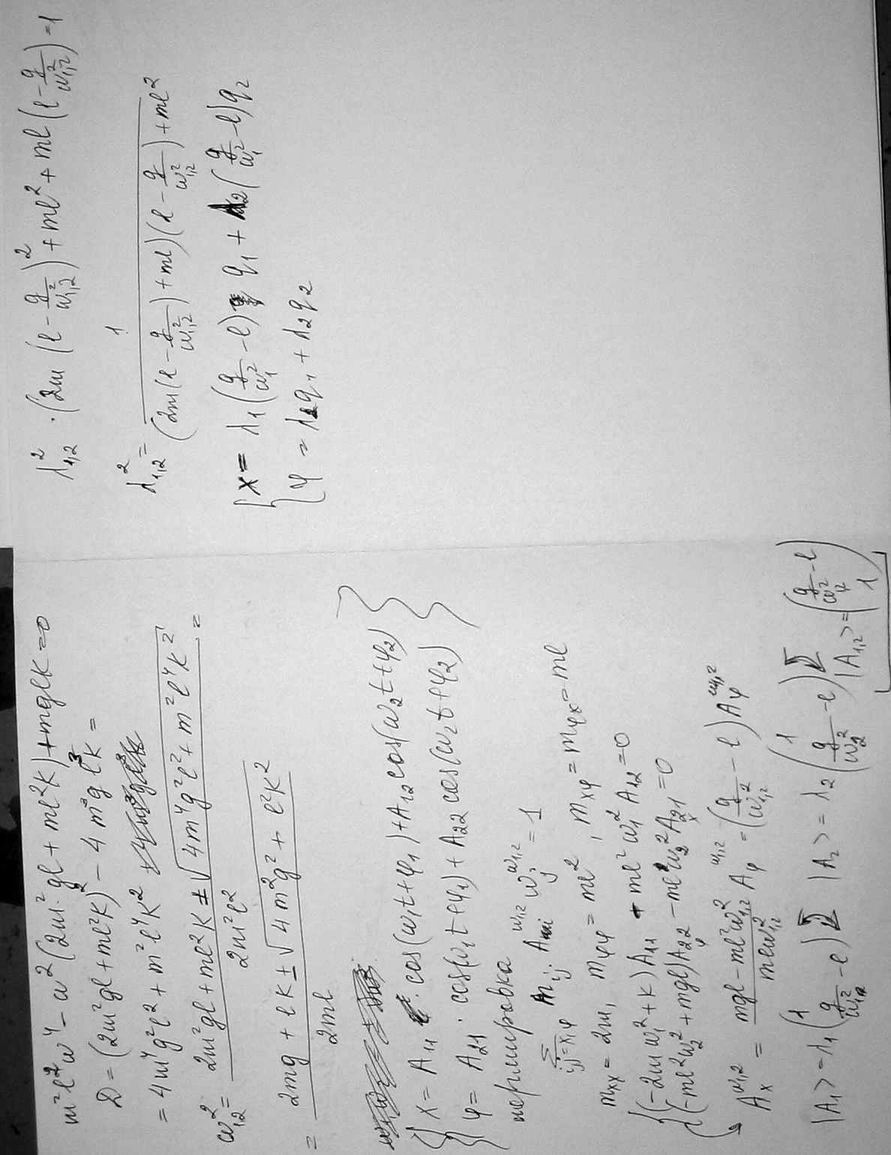 m²l²ω⁴ - ω²(2m²gl + ml²k) + mglk = 0
D = (2m²gl + ml²k)² - 4m³gl³k =
= 4m⁴g²l² + m²l⁴k²
ω²₁,₂ = (2m²gl + ml²k ± √(4m⁴g²l² + m²l⁴k²)) / 2m²l² =
= (2mg + lk ± √(4m²g² + l²k²)) / 2ml
{ x = A₁₁ cos(ω₁t+φ₁) + A₁₂ cos(ω₂t+φ₂) }
{ φ = A₂₁ · cos(ω₁t+φ₁) + A₂₂ cos(ω₂t+φ₂) }
нормировка
Σ i,j=x,φ m ij A ω₁,₂ ω₁,₂ = 1
mₓₓ = 2m, m_φφ = ml², m_xφ = m_φx = ml
{ (-2mω₁² + k)A₁₁ + ml²ω₁²A₁₂ = 0
{ (-ml²ω₂² + mgl)A₂₂ - mlω₂²A₂₁ = 0
Aₓ^ω₁,₂ = (mgl - ml²ω²₁,₂) / mlω²₁,₂ A_φ^ω₁,₂ = (g/ω²₁,₂ - l) A_φ^ω₁,₂
|A₁> = λ₁ (1 / g/ω₁² - l) |A₂> = λ₂ (1 / g/ω₂² - l) |A₁,₂> = (g/ω²₁,₂ - l / 1)
λ²₁,₂ · (2m (l - g/ω²₁,₂)² + ml² + ml (l - g/ω²₁,₂) = 1
λ²₁,₂ = 1 / (2m(l - g/ω²₁,₂) + ml)(l - g/ω²₁,₂) + ml²
{ x = λ₁ (g/ω₁² - l) q₁ + λ₂ (g/ω₁² - l) q₂
{ φ = λ₂q₁ + λ₂q₂